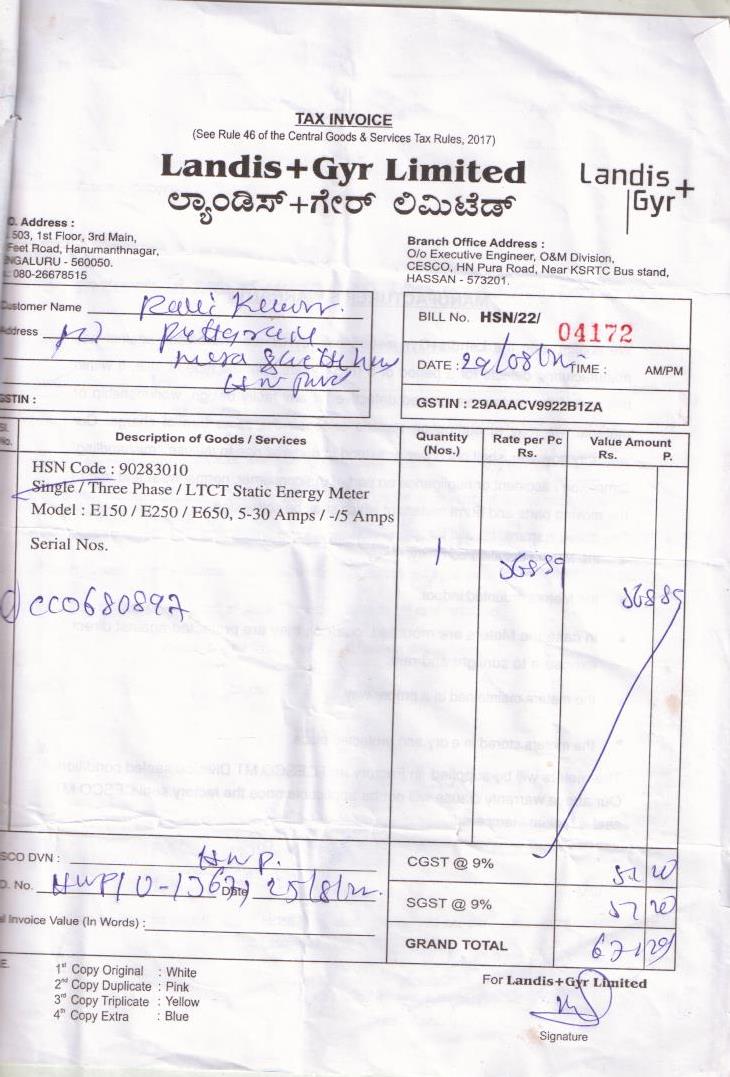 TAX INVOICE
(See Rule 46 of the Central Goods & Services Tax Rules, 2017)
Landis+Gyr Limited
ಲ್ಯಾಂಡಿಸ್+ಗೇರ್ ಲಿಮಿಟೆಡ್
Landis+
Gyr
Address :
503, 1st Floor, 3rd Main,
Feet Road, Hanumanthnagar,
NGALURU - 560050.
080-26678515
Branch Office Address :
O/o Executive Engineer, O&M Division,
CESCO, HN Pura Road, Near KSRTC Bus stand,
HASSAN - 573201.
Customer Name Ravi Kumar.
Address
BILL No. HSN/22/ 04172
DATE : TIME : AM/PM
GSTIN :
GSTIN : 29AAACV9922B1ZA
Sl. No. Description of Goods / Services Quantity (Nos.) Rate per Pc Rs. Value Amount Rs. P.
HSN Code : 90283010
Single / Three Phase / LTCT Static Energy Meter
Model : E150 / E250 / E650, 5-30 Amps / -/5 Amps
Serial Nos.
1
CC0680897
SCO DVN : HNP.
No. Date
Invoice Value (In Words) :
CGST @ 9%
SGST @ 9%
GRAND TOTAL
1st Copy Original : White
2nd Copy Duplicate : Pink
3rd Copy Triplicate : Yellow
4th Copy Extra : Blue
For Landis+Gyr Limited
Signature